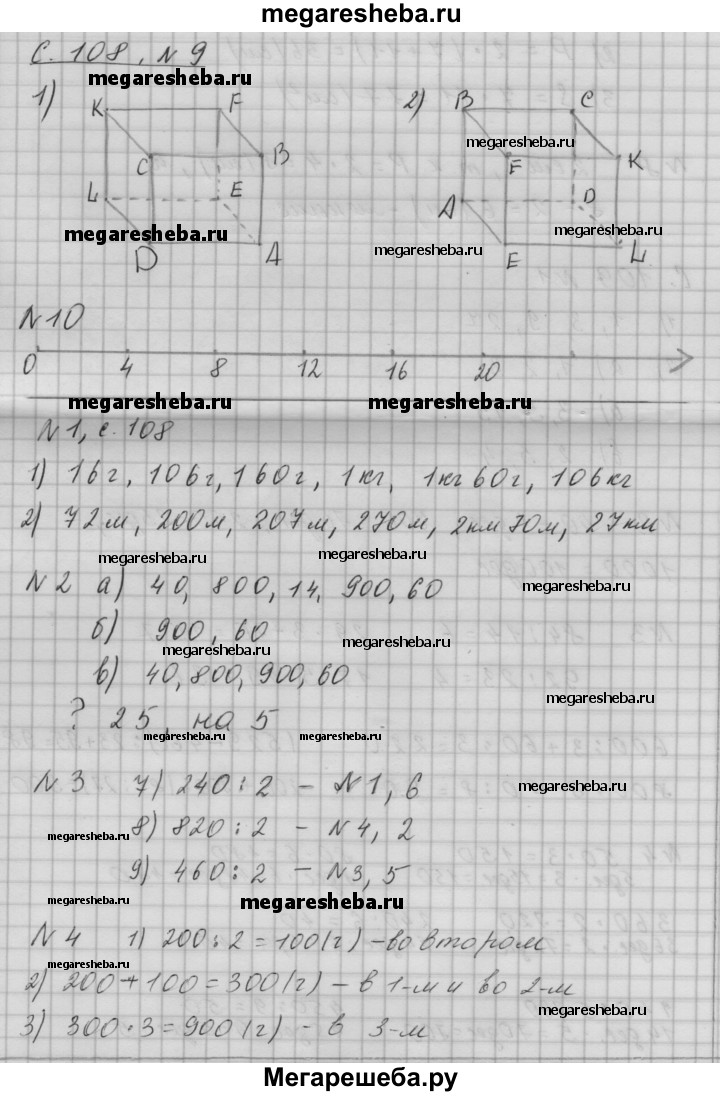 megaresheba.ru
С. 108, N 9
megaresheba.ru
1) K F 2) B C
megaresheba.ru
C B F K
L E A D
megaresheba.ru megaresheba.ru
megaresheba.ru
D A E L
N 10
0 4 8 12 16 20
megaresheba.ru megaresheba.ru
N 1, с. 108
1) 16 г, 106 г, 160 г, 1 кг, 1 кг 60 г, 106 кг
2) 72 м, 200 м, 207 м, 270 м, 2 км 70 м, 27 км
megaresheba.ru megaresheba.ru
N 2 а) 40, 800, 14, 900, 60
megaresheba.ru
б) 900, 60
megaresheba.ru megaresheba.ru
в) 40, 800, 900, 60
megaresheba.ru
? 25, на 5
megaresheba.ru megaresheba.ru
N 3 7) 240 : 2 - N 1, 6
megaresheba.ru
8) 820 : 2 - N 4, 2
megaresheba.ru megaresheba.ru
9) 460 : 2 - N 3, 5
megaresheba.ru megaresheba.ru
N 4 1) 200 : 2 = 100 (г) - во втором
megaresheba.ru
2) 200 + 100 = 300 (г) - в 1-м и во 2-м
megaresheba.ru
3) 300 · 3 = 900 (г) - в 3-м
Мегарешеба.ру